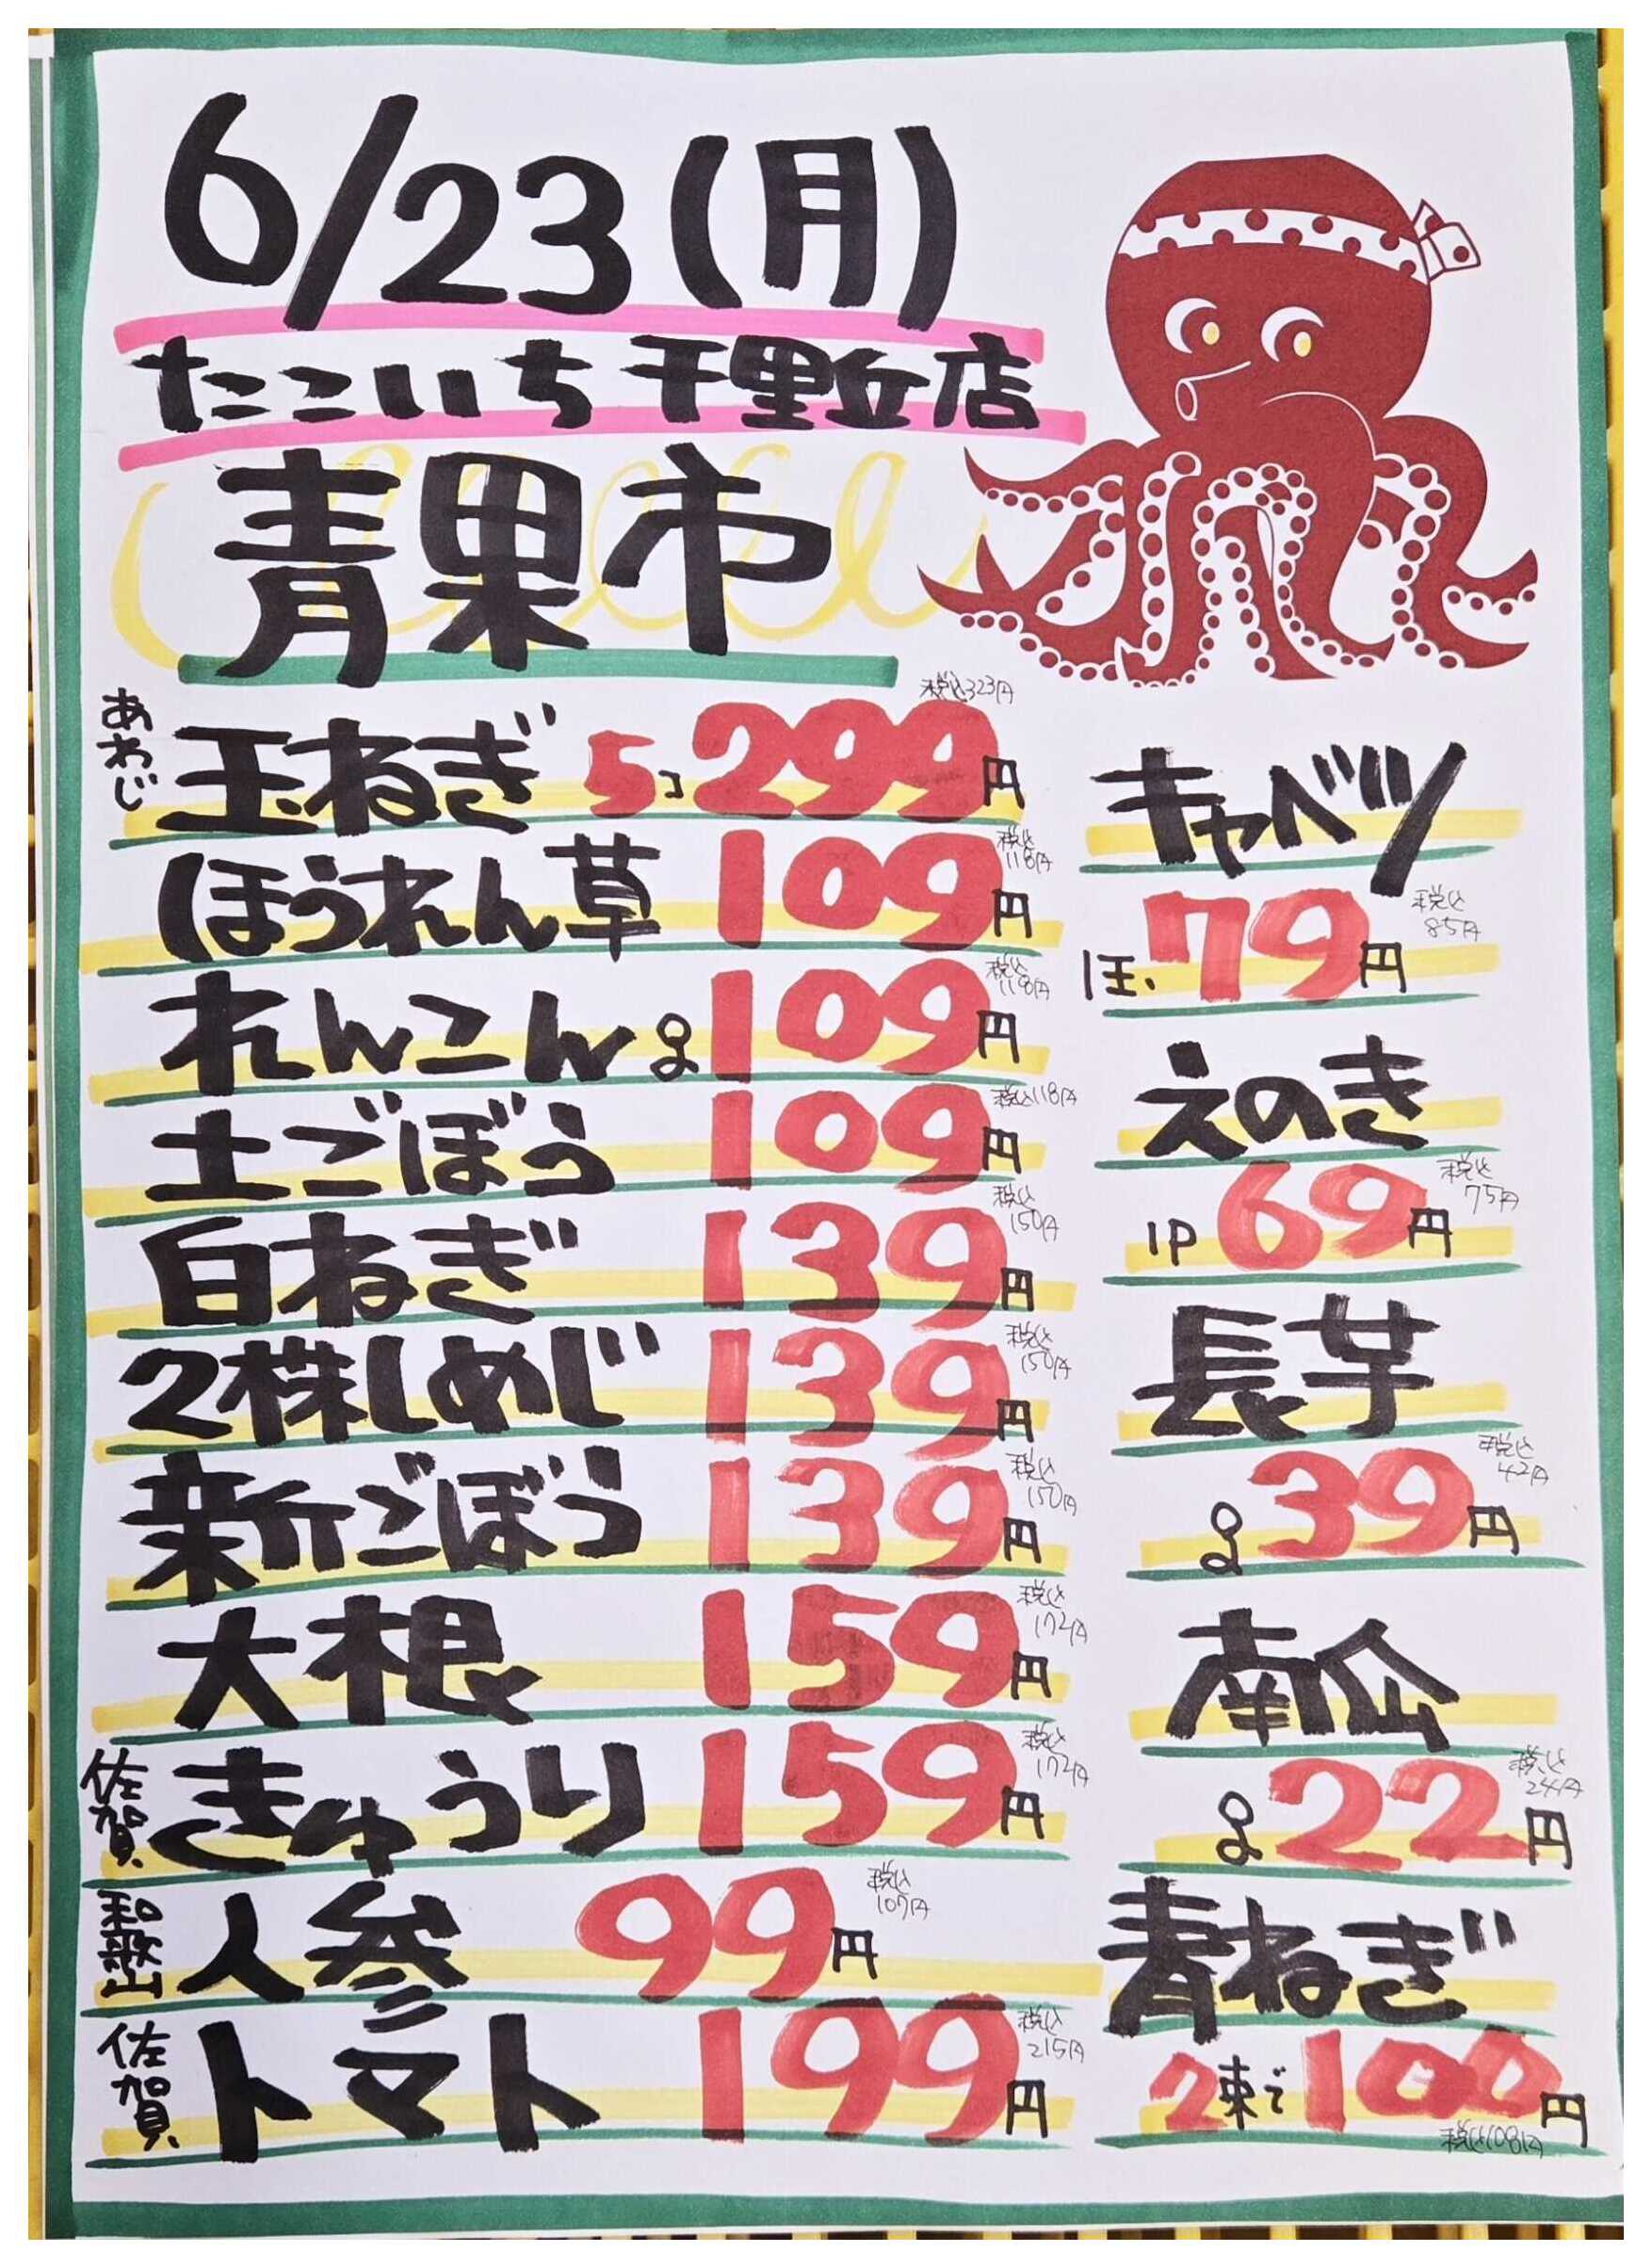 6/23(月)
たこいち千里丘店
青果市
あわじ 玉ねぎ 5コ 299円 税込323円
ほうれん草 109円 税込118円
れんこん 109円 税込118円
土ごぼう 109円 税込118円
白ねぎ 139円 税込150円
2株しめじ 139円 税込150円
新ごぼう 139円 税込150円
大根 159円 税込172円
佐賀 きゅうり 159円 税込172円
和歌山 人参 99円 税込107円
佐賀 トマト 199円 税込215円
キャベツ
79円 税込85円
えのき
1P 69円 税込75円
長芋
39円 税込42円
南瓜
22円 税込24円
青ねぎ
2束で100円
税込108円